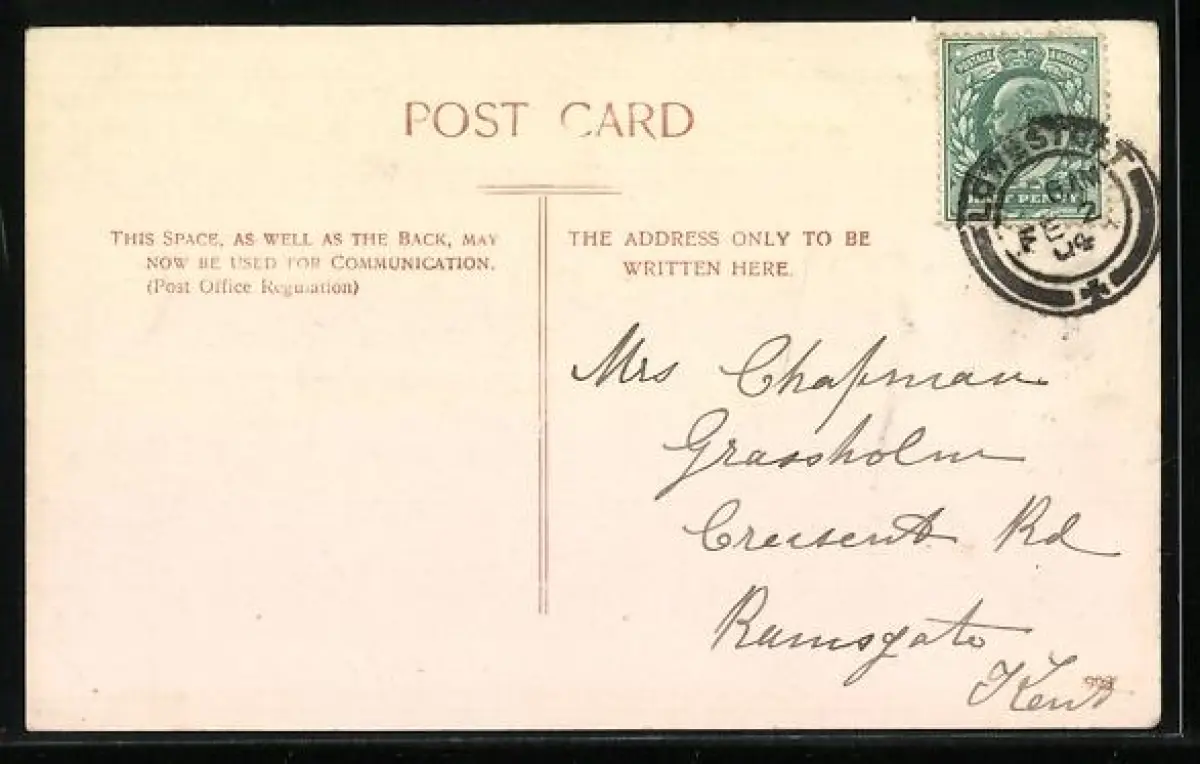 POST CARD
THIS SPACE, AS WELL AS THE BACK, MAY
NOW BE USED FOR COMMUNICATION.
(Post Office Regulation)
THE ADDRESS ONLY TO BE
WRITTEN HERE.
POSTAGE
HALF PENNY
LOWESTOFT
FE 2
04
Mrs Chapman
Grassholm
Crescent Rd
Ramsgate
Kent